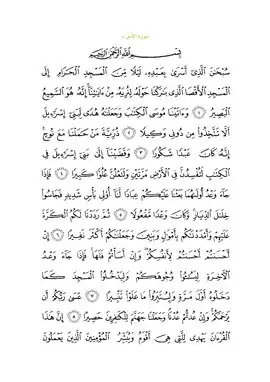 سورة الإسراء
بِسْمِ اللَّهِ الرَّحْمَٰنِ الرَّحِيمِ
سُبْحَانَ الَّذِي أَسْرَىٰ بِعَبْدِهِ لَيْلًا مِنَ الْمَسْجِدِ الْحَرَامِ إِلَى
الْمَسْجِدِ الْأَقْصَا الَّذِي بَارَكْنَا حَوْلَهُ لِنُرِيَهُ مِنْ آيَاتِنَا إِنَّهُ هُوَ السَّمِيعُ
الْبَصِيرُ ١ وَآتَيْنَا مُوسَى الْكِتَابَ وَجَعَلْنَاهُ هُدًى لِبَنِي إِسْرَائِيلَ
أَلَّا تَتَّخِذُوا مِنْ دُونِي وَكِيلًا ٢ ذُرِّيَّةَ مَنْ حَمَلْنَا مَعَ نُوحٍ
إِنَّهُ كَانَ عَبْدًا شَكُورًا ٣ وَقَضَيْنَا إِلَىٰ بَنِي إِسْرَائِيلَ فِي
الْكِتَابِ لَتُفْسِدُنَّ فِي الْأَرْضِ مَرَّتَيْنِ وَلَتَعْلُنَّ عُلُوًّا كَبِيرًا ٤ فَإِذَا
جَاءَ وَعْدُ أُولَاهُمَا بَعَثْنَا عَلَيْكُمْ عِبَادًا لَنَا أُولِي بَأْسٍ شَدِيدٍ فَجَاسُوا
خِلَالَ الدِّيَارِ وَكَانَ وَعْدًا مَفْعُولًا ٥ ثُمَّ رَدَدْنَا لَكُمُ الْكَرَّةَ
عَلَيْهِمْ وَأَمْدَدْنَاكُمْ بِأَمْوَالٍ وَبَنِينَ وَجَعَلْنَاكُمْ أَكْثَرَ نَفِيرًا ٦ إِنْ
أَحْسَنْتُمْ أَحْسَنْتُمْ لِأَنْفُسِكُمْ وَإِنْ أَسَأْتُمْ فَلَهَا فَإِذَا جَاءَ وَعْدُ
الْآخِرَةِ لِيَسُوءُوا وُجُوهَكُمْ وَلِيَدْخُلُوا الْمَسْجِدَ كَمَا
دَخَلُوهُ أَوَّلَ مَرَّةٍ وَلِيُتَبِّرُوا مَا عَلَوْا تَتْبِيرًا ٧ عَسَىٰ رَبُّكُمْ أَنْ
يَرْحَمَكُمْ وَإِنْ عُدْتُمْ عُدْنَا وَجَعَلْنَا جَهَنَّمَ لِلْكَافِرِينَ حَصِيرًا ٨ إِنَّ هَٰذَا
الْقُرْآنَ يَهْدِي لِلَّتِي هِيَ أَقْوَمُ وَيُبَشِّرُ الْمُؤْمِنِينَ الَّذِينَ يَعْمَلُونَ